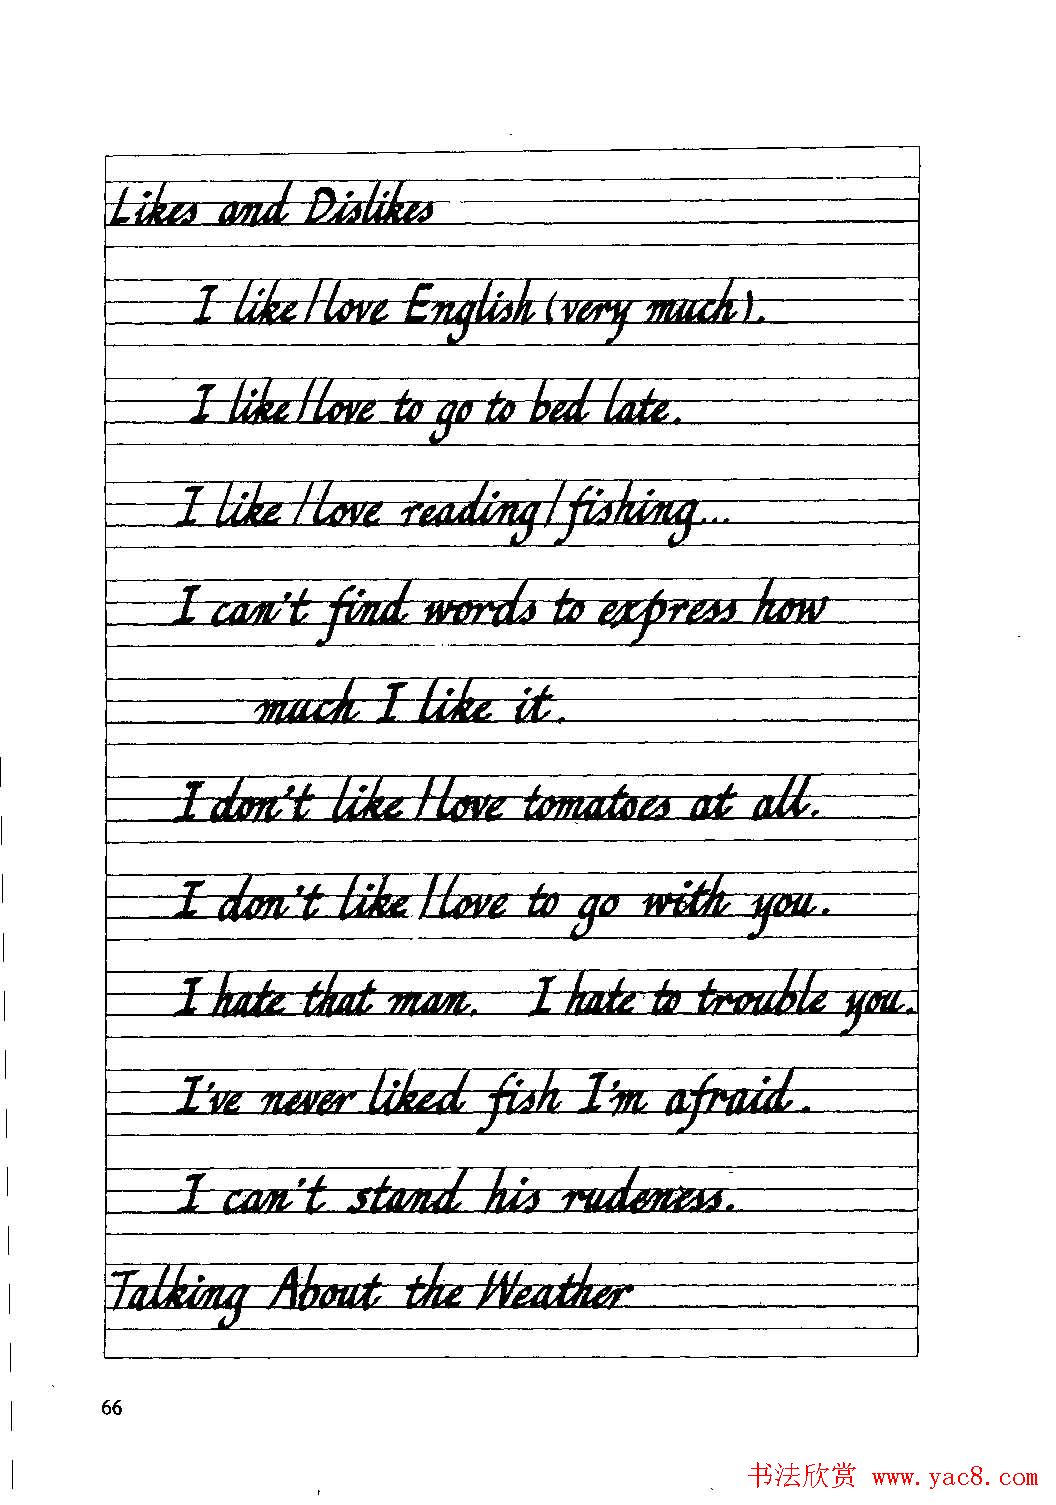 Likes and Dislikes
I like/love English (very much).
I like/love to go to bed late.
I like/love reading/fishing...
I can't find words to express how
much I like it.
I don't like/love tomatoes at all.
I don't like/love to go with you.
I hate that man. I hate to trouble you.
I've never liked fish I'm afraid.
I can't stand his rudeness.
Talking About the Weather
66
书法欣赏 www.yac8.com